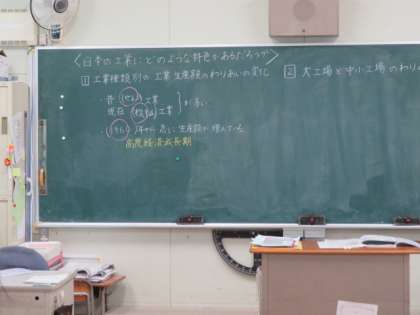 〈日本の工業にどのような特色があるだろうか〉
1 工業種類別の工業生産額のわりあいの変化
2 大工場と中小工場のわりあ
・昔 せんい工業
現在 機械工業
が多い
・1960年から急に生産額が増えている
高度経済成長期